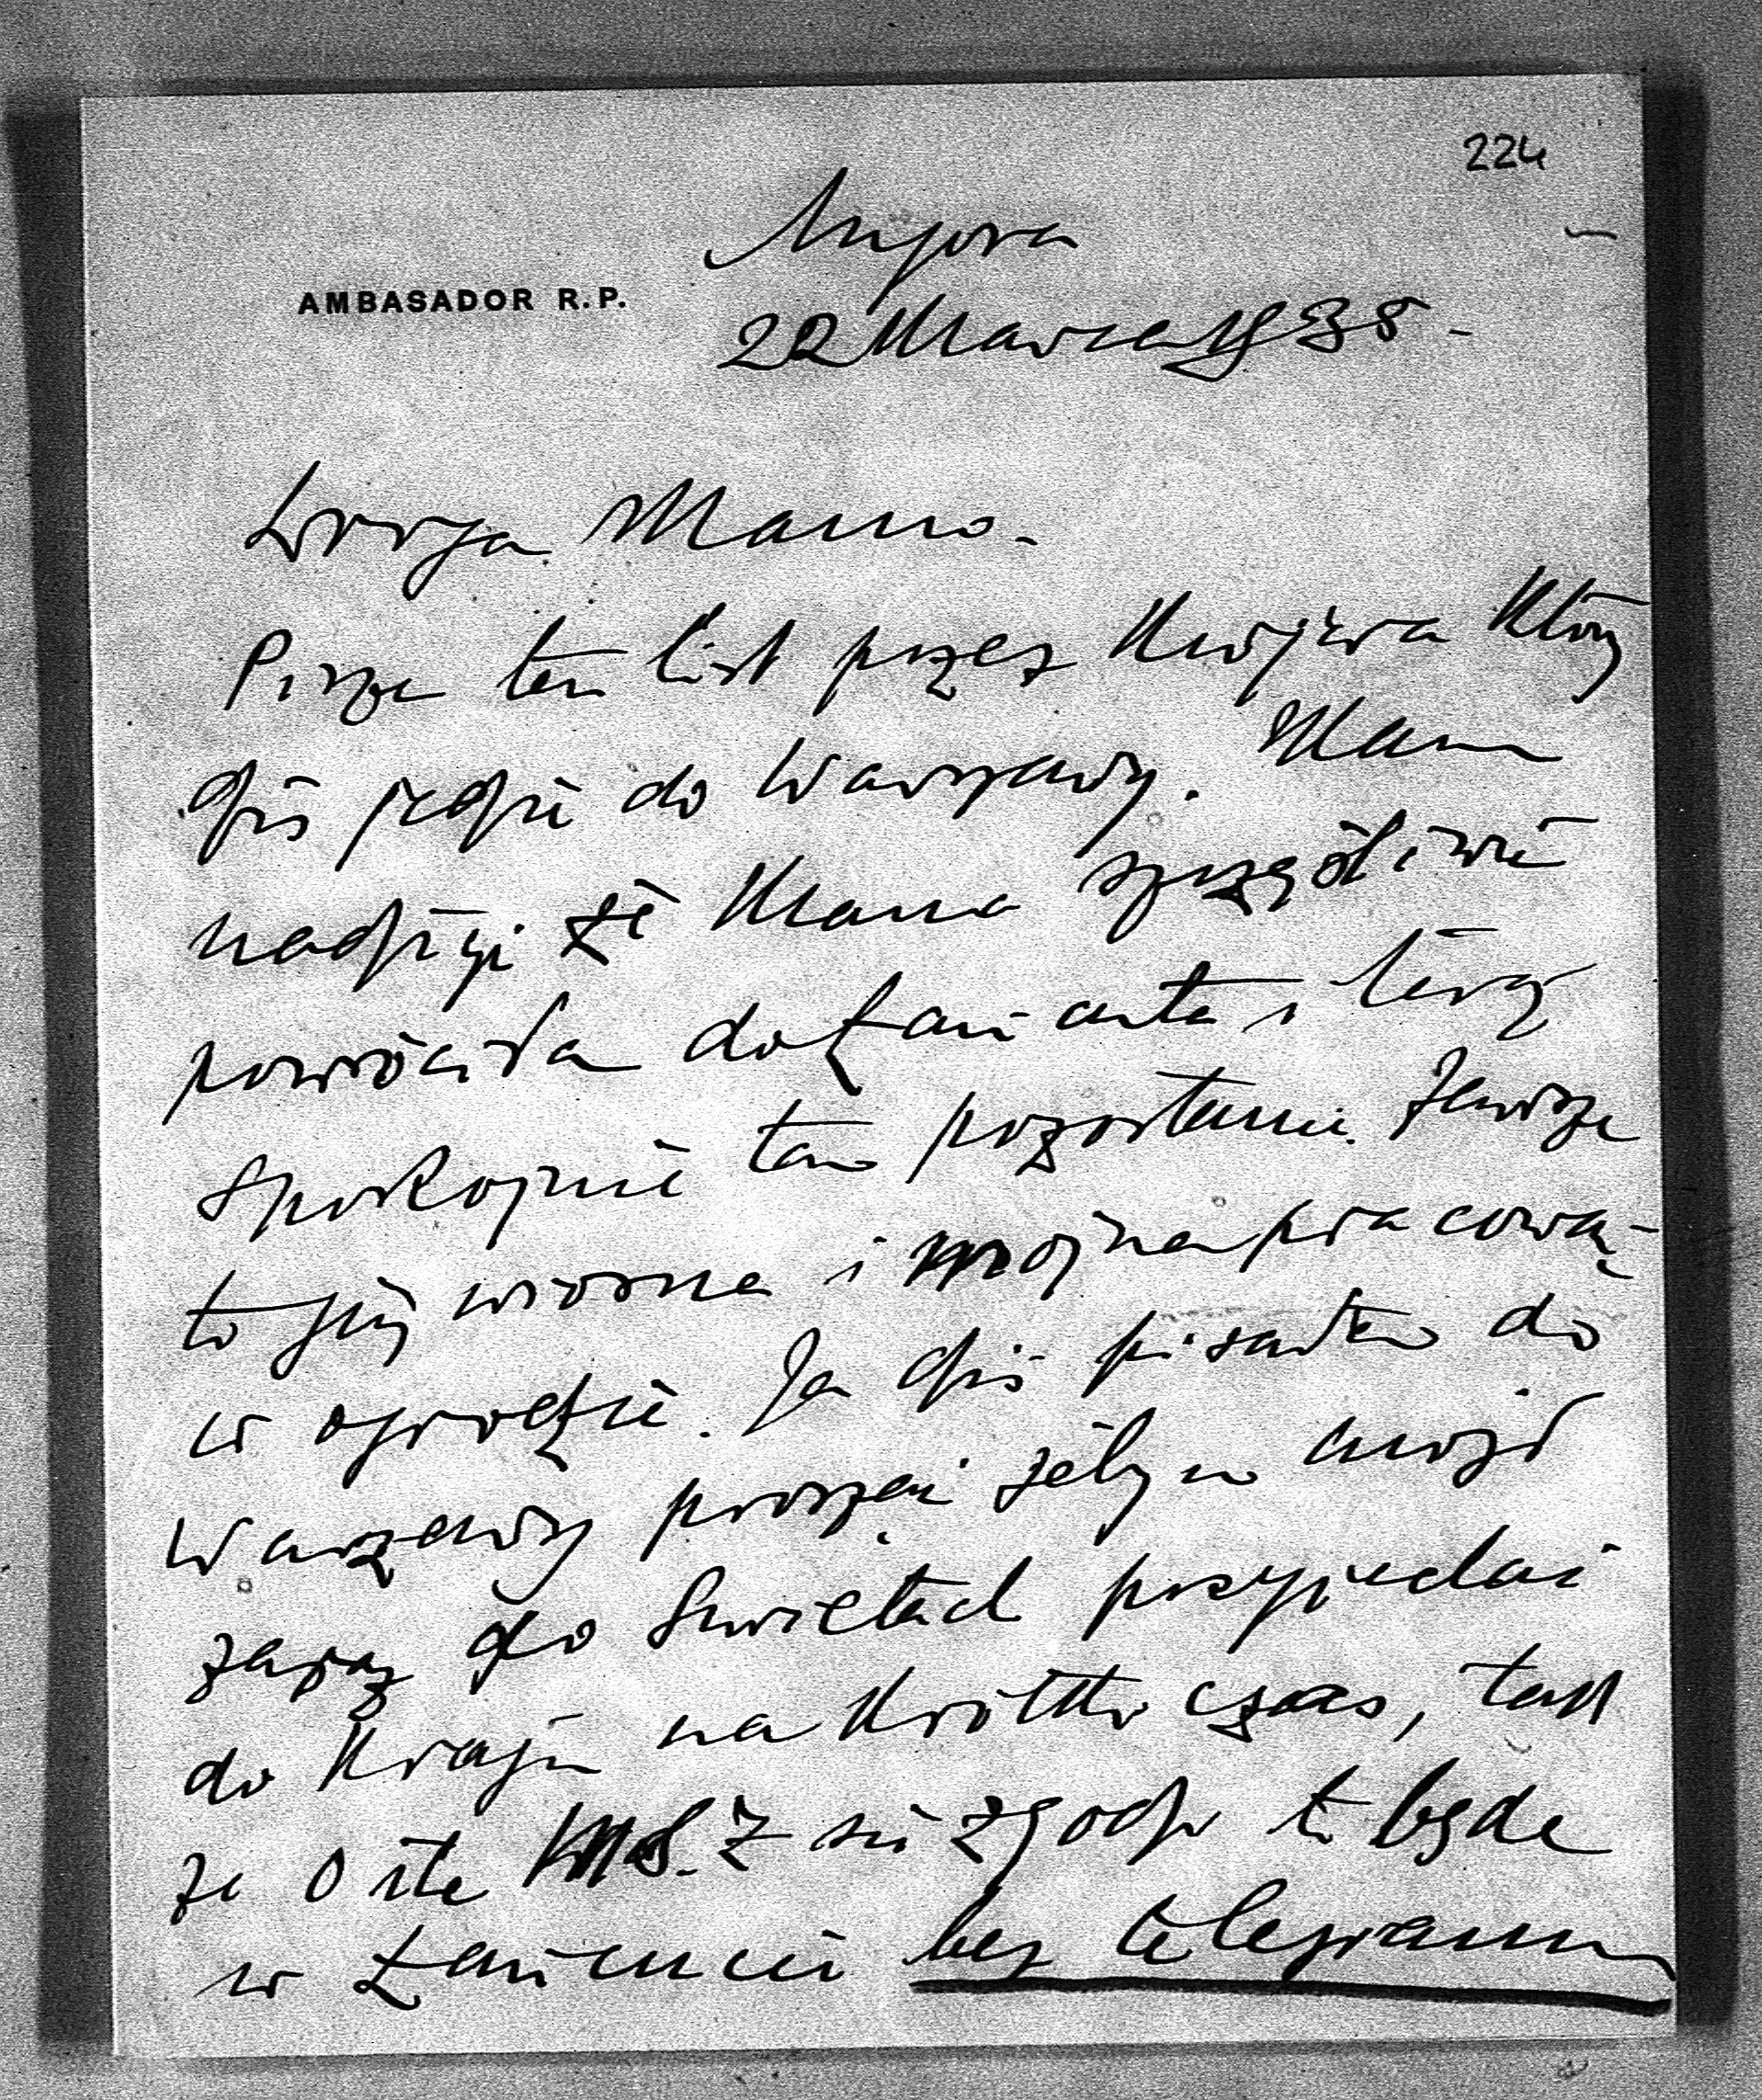 224
Angora
AMBASADOR R.P.
22 Marca 1938 -
Droga Mamo.
Piszę ten list przez który
dziś jedzie do Warszawy. Mam
nadzieję że Mama szczęśliwie
powróciła do Łańcuta i teraz
spokojnie tam pozostanie. Zawsze
to już wiosna i można pracować
w ogrodzie. Ja dziś pisałem do
Warszawy prosząc żebym mógł
zaraz po Świetach przyjechać
do Kraju na krótki czas, tak
że o ile M.S.Z się zgodzi to będę
w Łańcucie bez telegramu